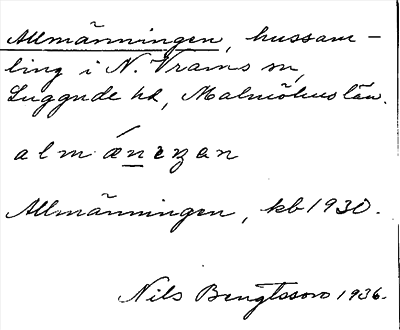 Allmänningen, hussam-
ling i N. Vrams sn,
Luggude hd, Malmöhus län.
almǽnıŋan
Allmänningen, kb 1930.
Nils Bengtsson 1936.